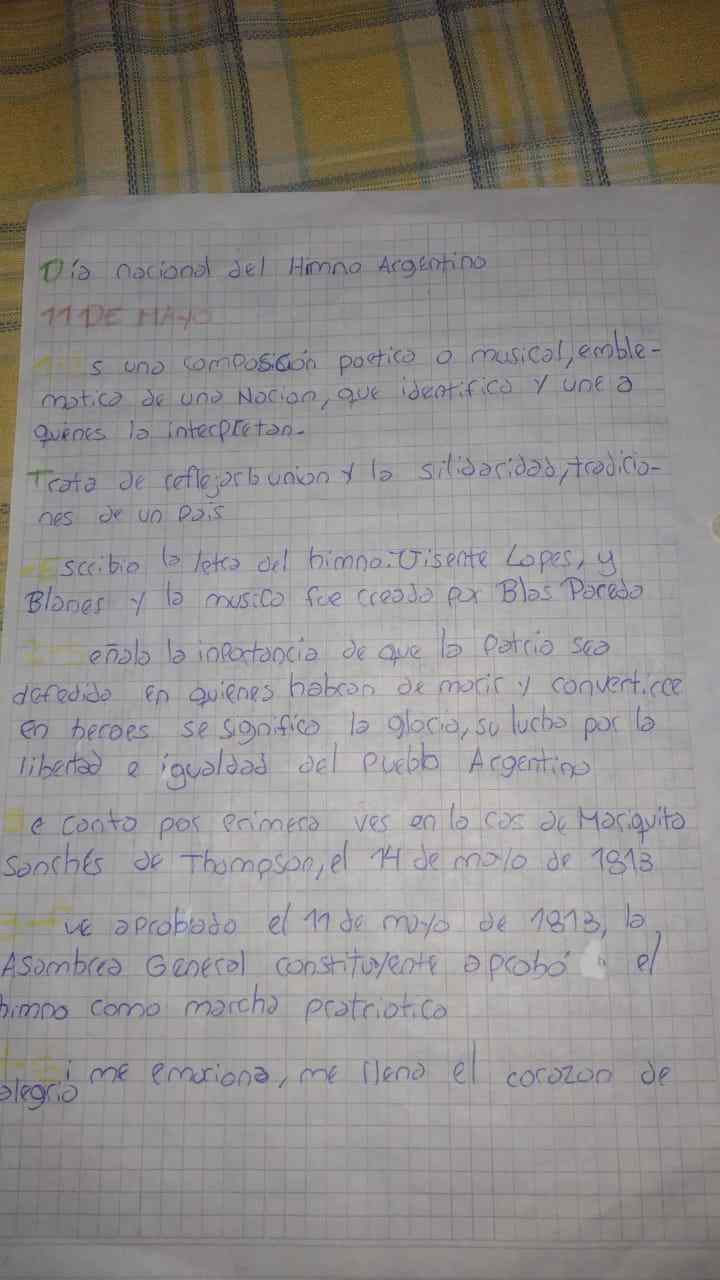 Día nacional del Himno Argentino
11 DE MAYO
1-Es una composición poetica o musical, emble-
matica de una Nacion, que identifica y une a
quénes la interpretan.
Trata de reflejar la union y la silidaridad, tradicio-
nes de un pais
Escribio la letra del himno: Visente Lopes, y
Blanes y la musica fue creada por Blas Pareda
2-Señala la inportancia de que la Patria sea
defedida en quienes habran de morir y convertirce
en heroes se significa la gloria, su lucha por la
libertad e igualdad del Pueblo Argentino
Se canto por primera ves en la cas de Mariquita
Sanchés de Thompson, el 14 de mayo de 1813
3-Fue aprobado el 11 de mayo de 1813, la
Asambrea General constituyente aprobó el
himno como marcha pratriotica
Si me emociona, me llena el corazon de
alegria